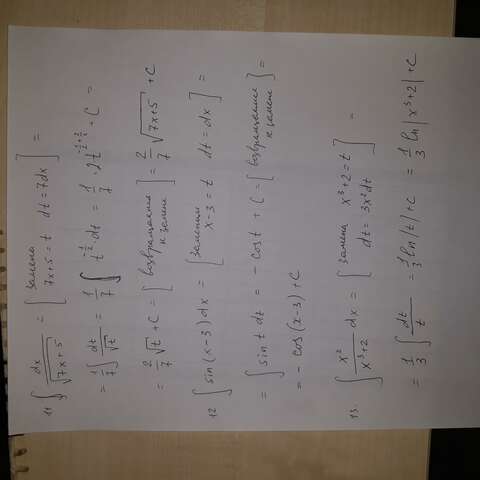 11 ∫ dx/√(7x+5) = [замена 7x+5=t dt=7dx] =
= 1/7 ∫ dt/√t = 1/7 ∫ t^(-1/2) dt = 1/7 · 2t^(-1/2+2/2) + C =
= 2/7 √t + C = [возвращаемся к замене] = 2/7 √(7x+5) + C
12 ∫ sin(x-3)dx = [заменим x-3=t dt=dx] =
= ∫ sin t dt = -cos t + C = [возвращаемся к замене] =
= -cos(x-3)+C
13. ∫ x²/(x³+2) dx = [замена x³+2=t dt=3x²dt] =
= 1/3 ∫ dt/t = 1/3 ln|t|+C = 1/3 ln|x³+2|+C